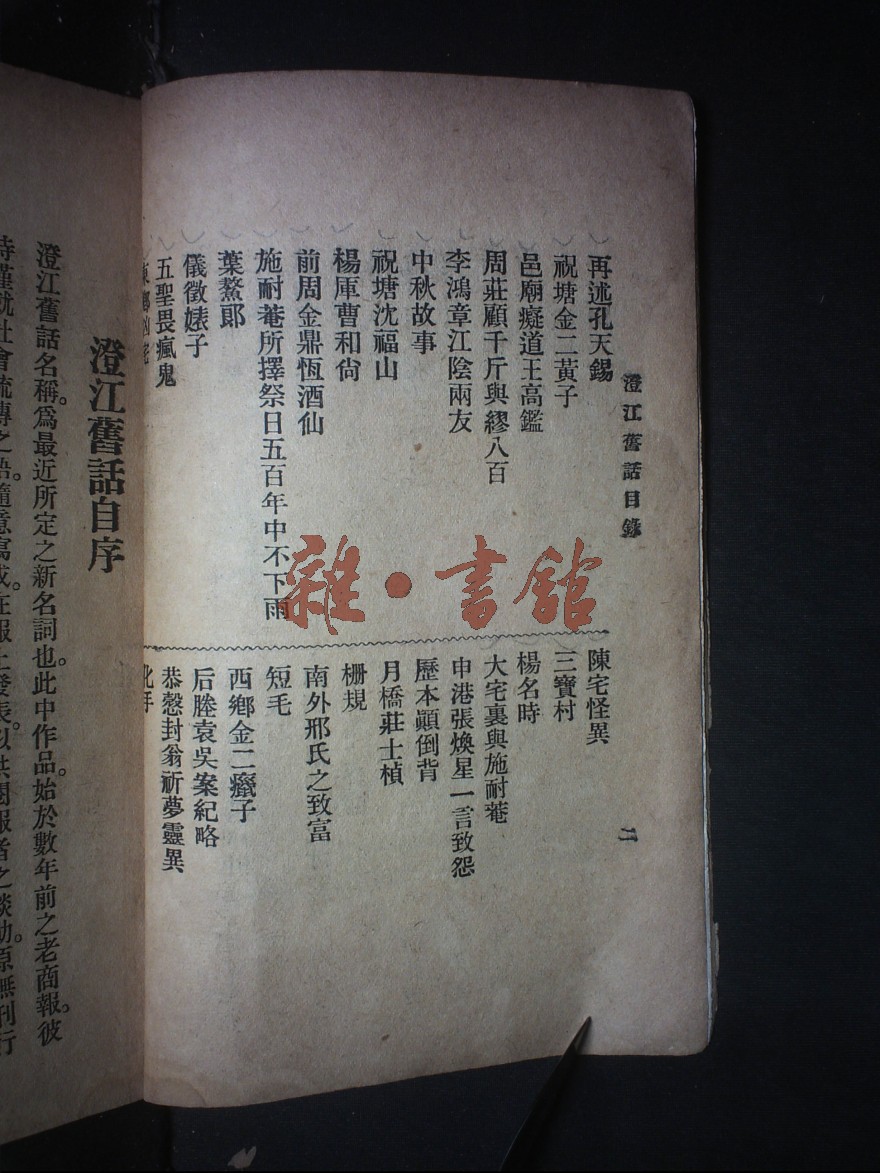 澄江舊話目錄
二
再述孔天錫
祝塘金二黃子
邑廟癡道王高鑑
周莊顧千斤與繆八百
李鴻章江陰兩友
中秋故事
祝塘沈福山
楊厙曹和尙
前周金鼎恆酒仙
施耐菴所擇祭日五百年中不下雨
葉鰲郞
儀徵婊子
五聖畏瘋鬼
東鄕凶宅
陳宅怪異
三寶村
楊名時
大宅裏與施耐菴
申港張煥星一言致怨
歷本顚倒背
月橋莊士楨
柵規
南外邢氏之致富
短毛
西鄕金二癥子
后塍袁吳案紀略
恭愨封翁祈夢靈異
雜·書館
澄江舊話自序
澄江舊話名稱。爲最近所定之新名詞也。此中作品。始於數年前之老商報。彼
時僅就社會流傳之語。隨意寫成。在報上發表。以供閱報者之談助。原無刊行